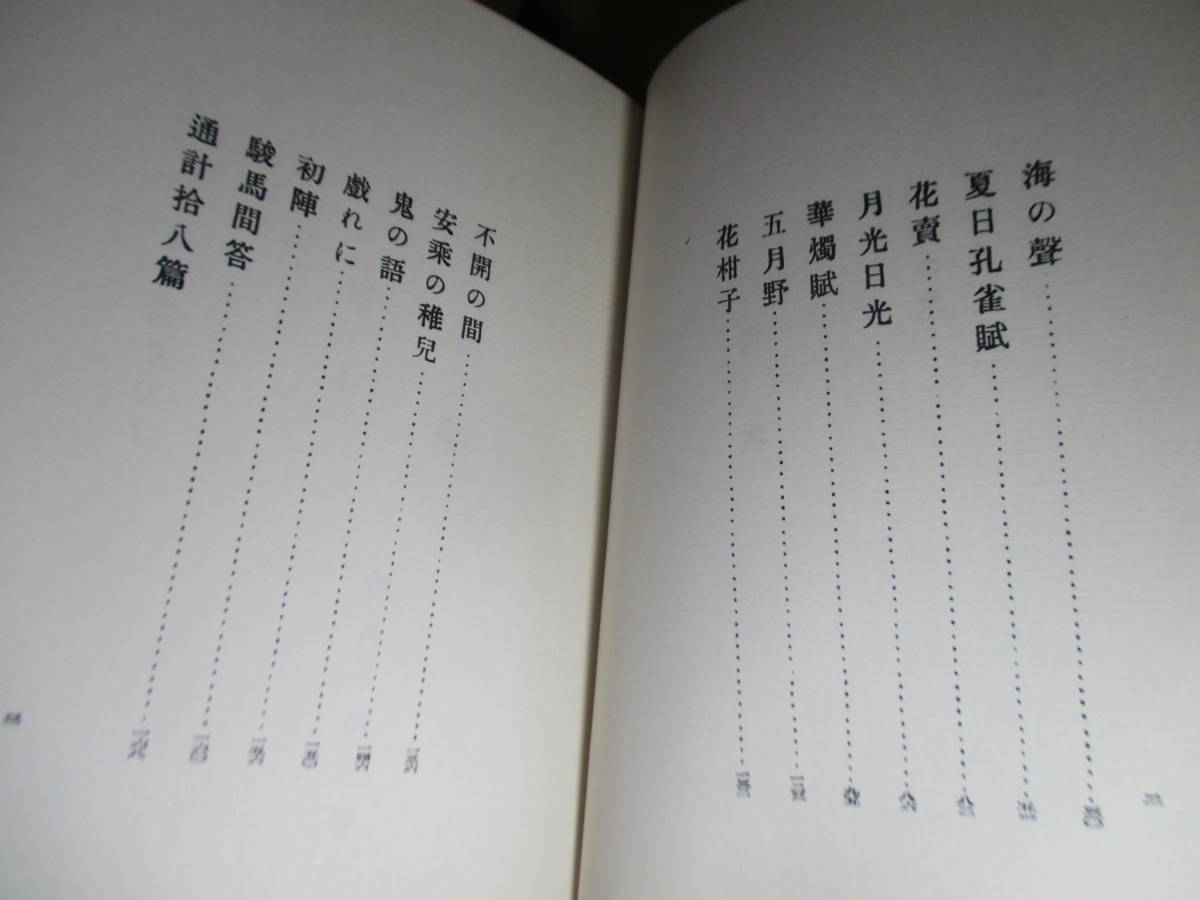 海の聲
夏日孔雀賦
花賣
月光日光
華燭賦
五月野
花柑子
不開の間
安乘の稚兒
鬼の語
戯れに
初陣
駿馬問答
通計拾八篇